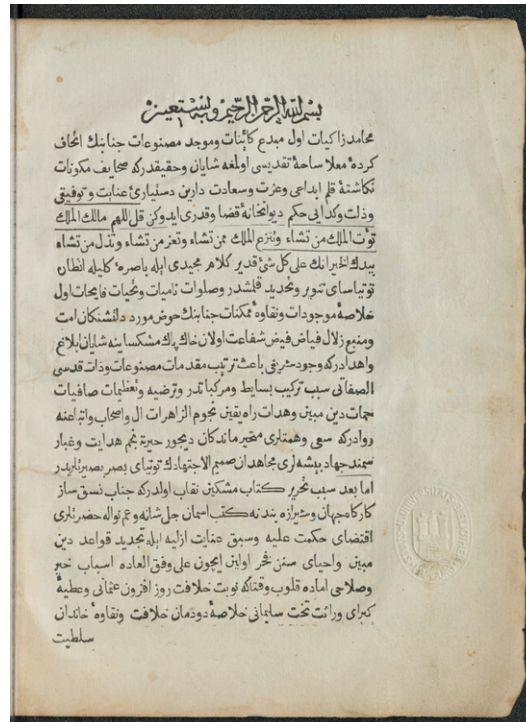 بسم الله الرحمن الرحيم وبه نستعين
محامد زاكيات اول مبدع كائنات وموجد مصنوعات جنابنك اتحاف
كرده معلا ساحهٔ تقديسى اولمغه شايان وحقيقدركه صحايف مكونات
نكاشتهٔ قلم ابداعى وعزت وسعادت دارين دستيارئ عنايت وتوفيقى
وذلت وكدايى حكم ديوانخانهٔ قضا وقدرى ايدوكن قل للهم مالك الملك
تؤت الملك من تشاء وتنزع الملك ممن تشاء وتعز من تشاء وتذل من تشاء
بيدك الخير انك على كل شئ قدير كلام مجيدى ايله باصرهٔ كليله انظان
توتياساى تنوير وتحديد قلمشدر وصلوات ناميات وتحيات فايحات اول
خلاصهٔ موجودات ونقاوهٔ ممكنات جنابنك حوض مورد دلتشنكان امت
ومنبع زلال فياض فيض شفاعت اولان خاك پاك مشكساينه شايان ابلاغ
واهدادركه وجود شريفى باعث ترتيب مقدمات مصنوعات وذات قدسى
الصفاتى سبب تركيب بسايط ومركباتدر وترضيه وتعظيمات صافيات
حمات دين مبين وهدات راه يقين نجوم الزاهرات ال واصحاب واتباعنه
روادركه سعى وهمتلرى متحير ماندكان ديجور حيرته نجم هدايت وغبار
سمند جهاد پيشه لرى مجاهدان صميم الاجتهادك توتياى بصر بصيرتلريدر
اما بعد سبب تحرير كتاب مشكين نقاب اولدركه جناب نسق ساز
كاركاه جهان وشيرازه بند نه كتب اسمان جل شانه وعم نواله حضرتلرى
اقتضاى حكمت عليه وسبق عنايت ازليه ايله تجديد قواعد دين
مبين واحياى سنن فخر اولين ايچون على وفق العاده اسباب خير
وصلاحى اماده قلوب وقتاكه نوبت خلافت روز افزون عثمانى وعطيهٔ
كبراى وراثت تخت سليمانى خلاصهٔ دودمان خلافت ونقاوهٔ خاندان
سلطيت